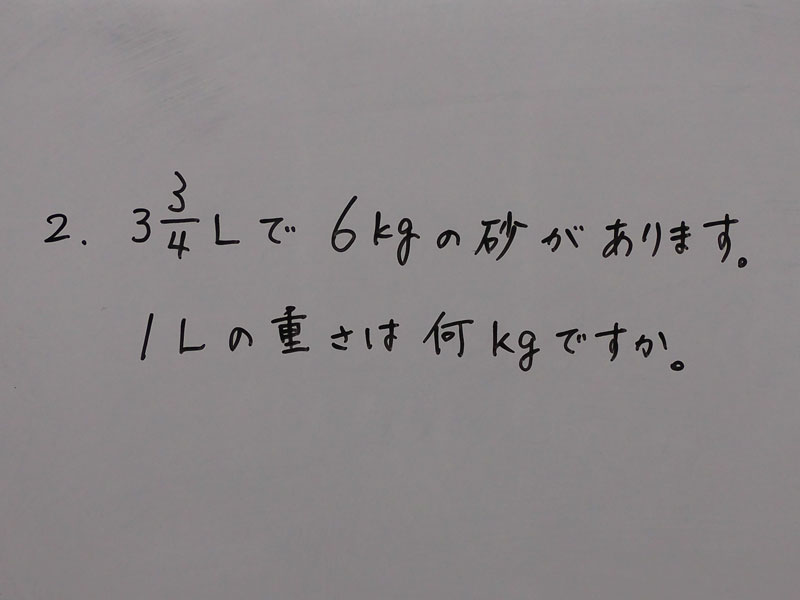 2. 3 3/4 L で 6kg の 砂 が あります。
1 L の 重さは 何 kg ですか。